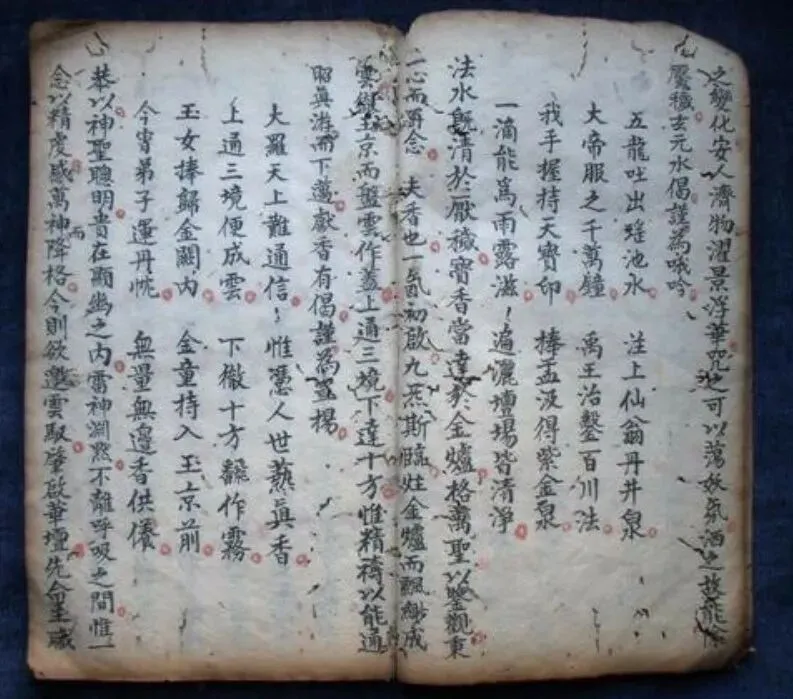 之變化安人濟物濯景浮華咒之可以蕩妖氛洒之故能除
壓穢去元水偈謹為哦吟
五龍吐出瑤池水 注上仙翁丹井泉
大帝服之千萬鐘 禹王治鑿百川法
我手握持天寶印 捧盂汲得紫金泉
一滴能為雨露滋 遍灑壇場皆清淨
法水既清於厭穢寶香當達於金爐格萬聖以鑒觀秉
一心而冥念 夫香也一氣初啟九炁斯臨炷金爐而飄緲成
雲 玉京而盤雲作蓋上通三境下達十方惟精禱以能通
昭真游而下邁獻香有偈謹為宣揚
大羅天上難通信 惟憑人世爇真香
上通三境便成雲 下徹十方飜作霧
玉女捧歸金闕內 金童持入玉京前
今宵弟子運丹忱 無量無邊香供儀
恭以神聖聰明貴在顯幽之內雷神淵默不離呼吸之間惟一
念以精虔感萬神降格今則欲邀雲馭肇啟華壇先命主職